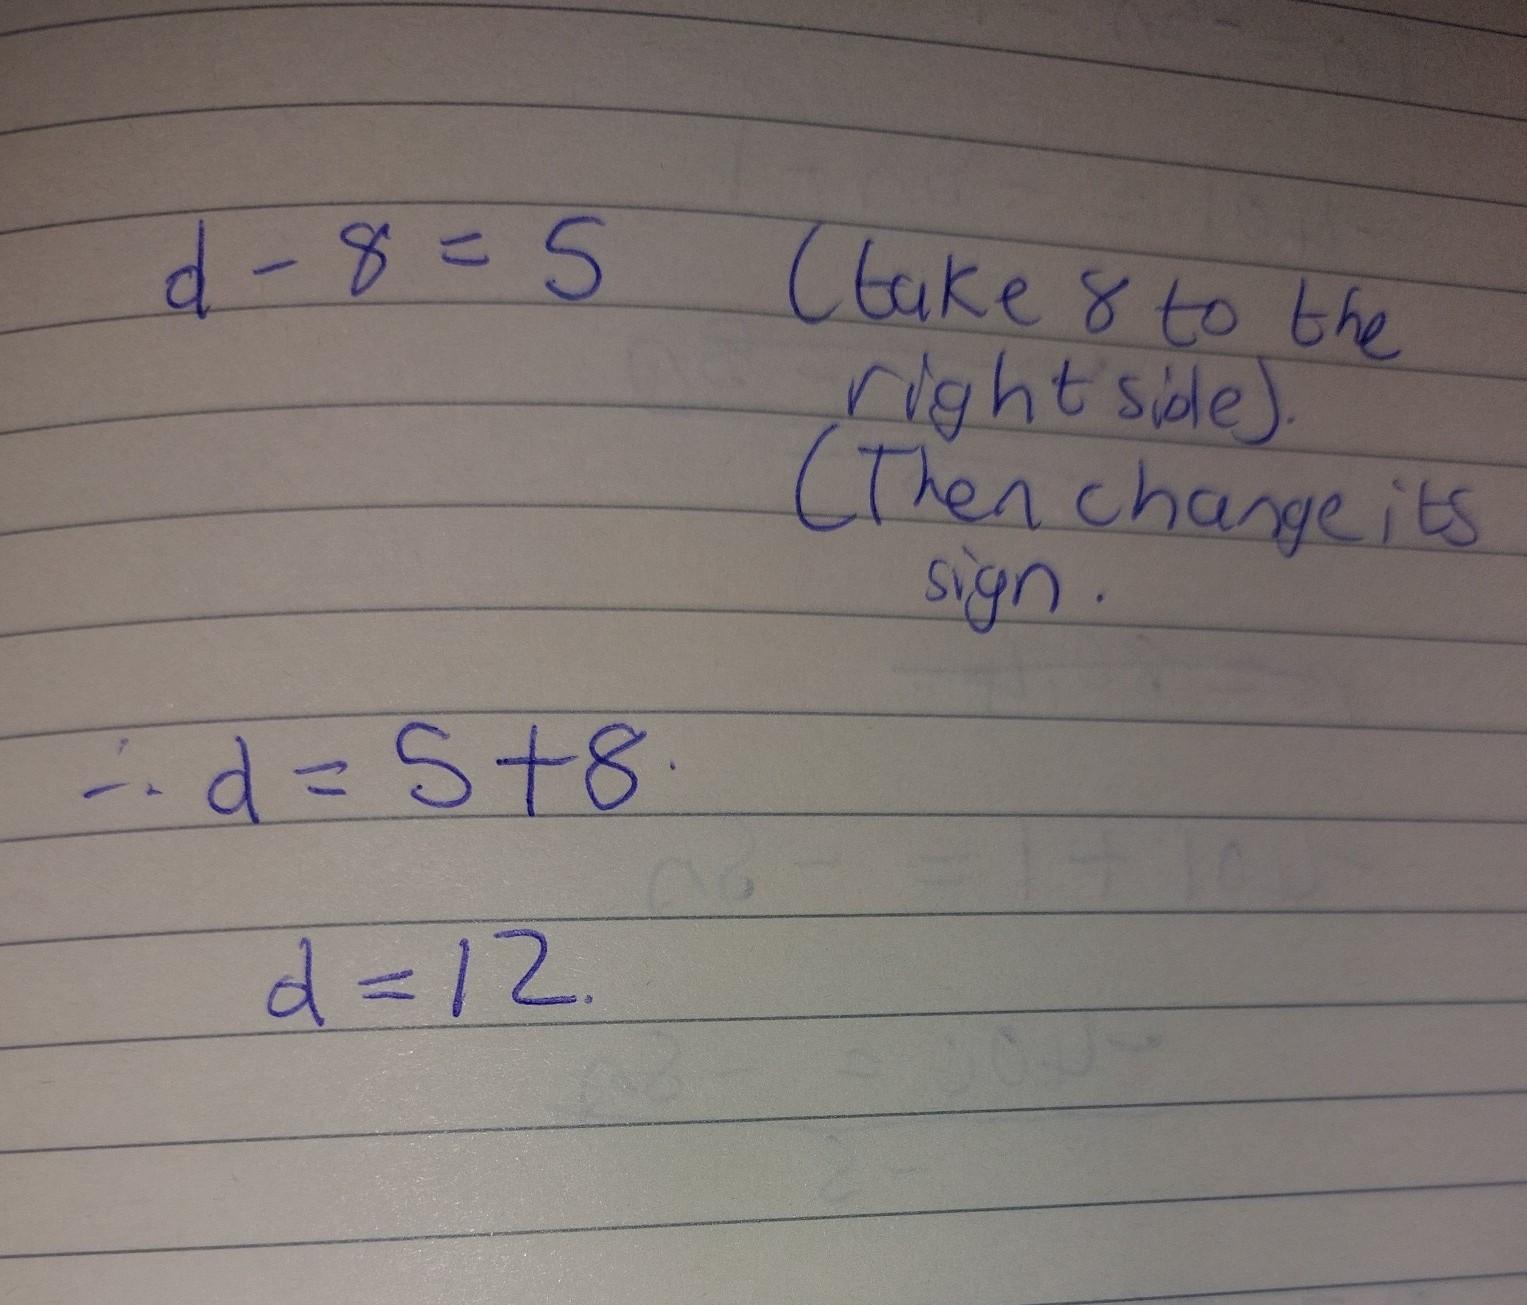 d - 8 = 5 (take 8 to the
right side).
(Then change its
sign.
∴ d = 5 + 8.
d = 12.